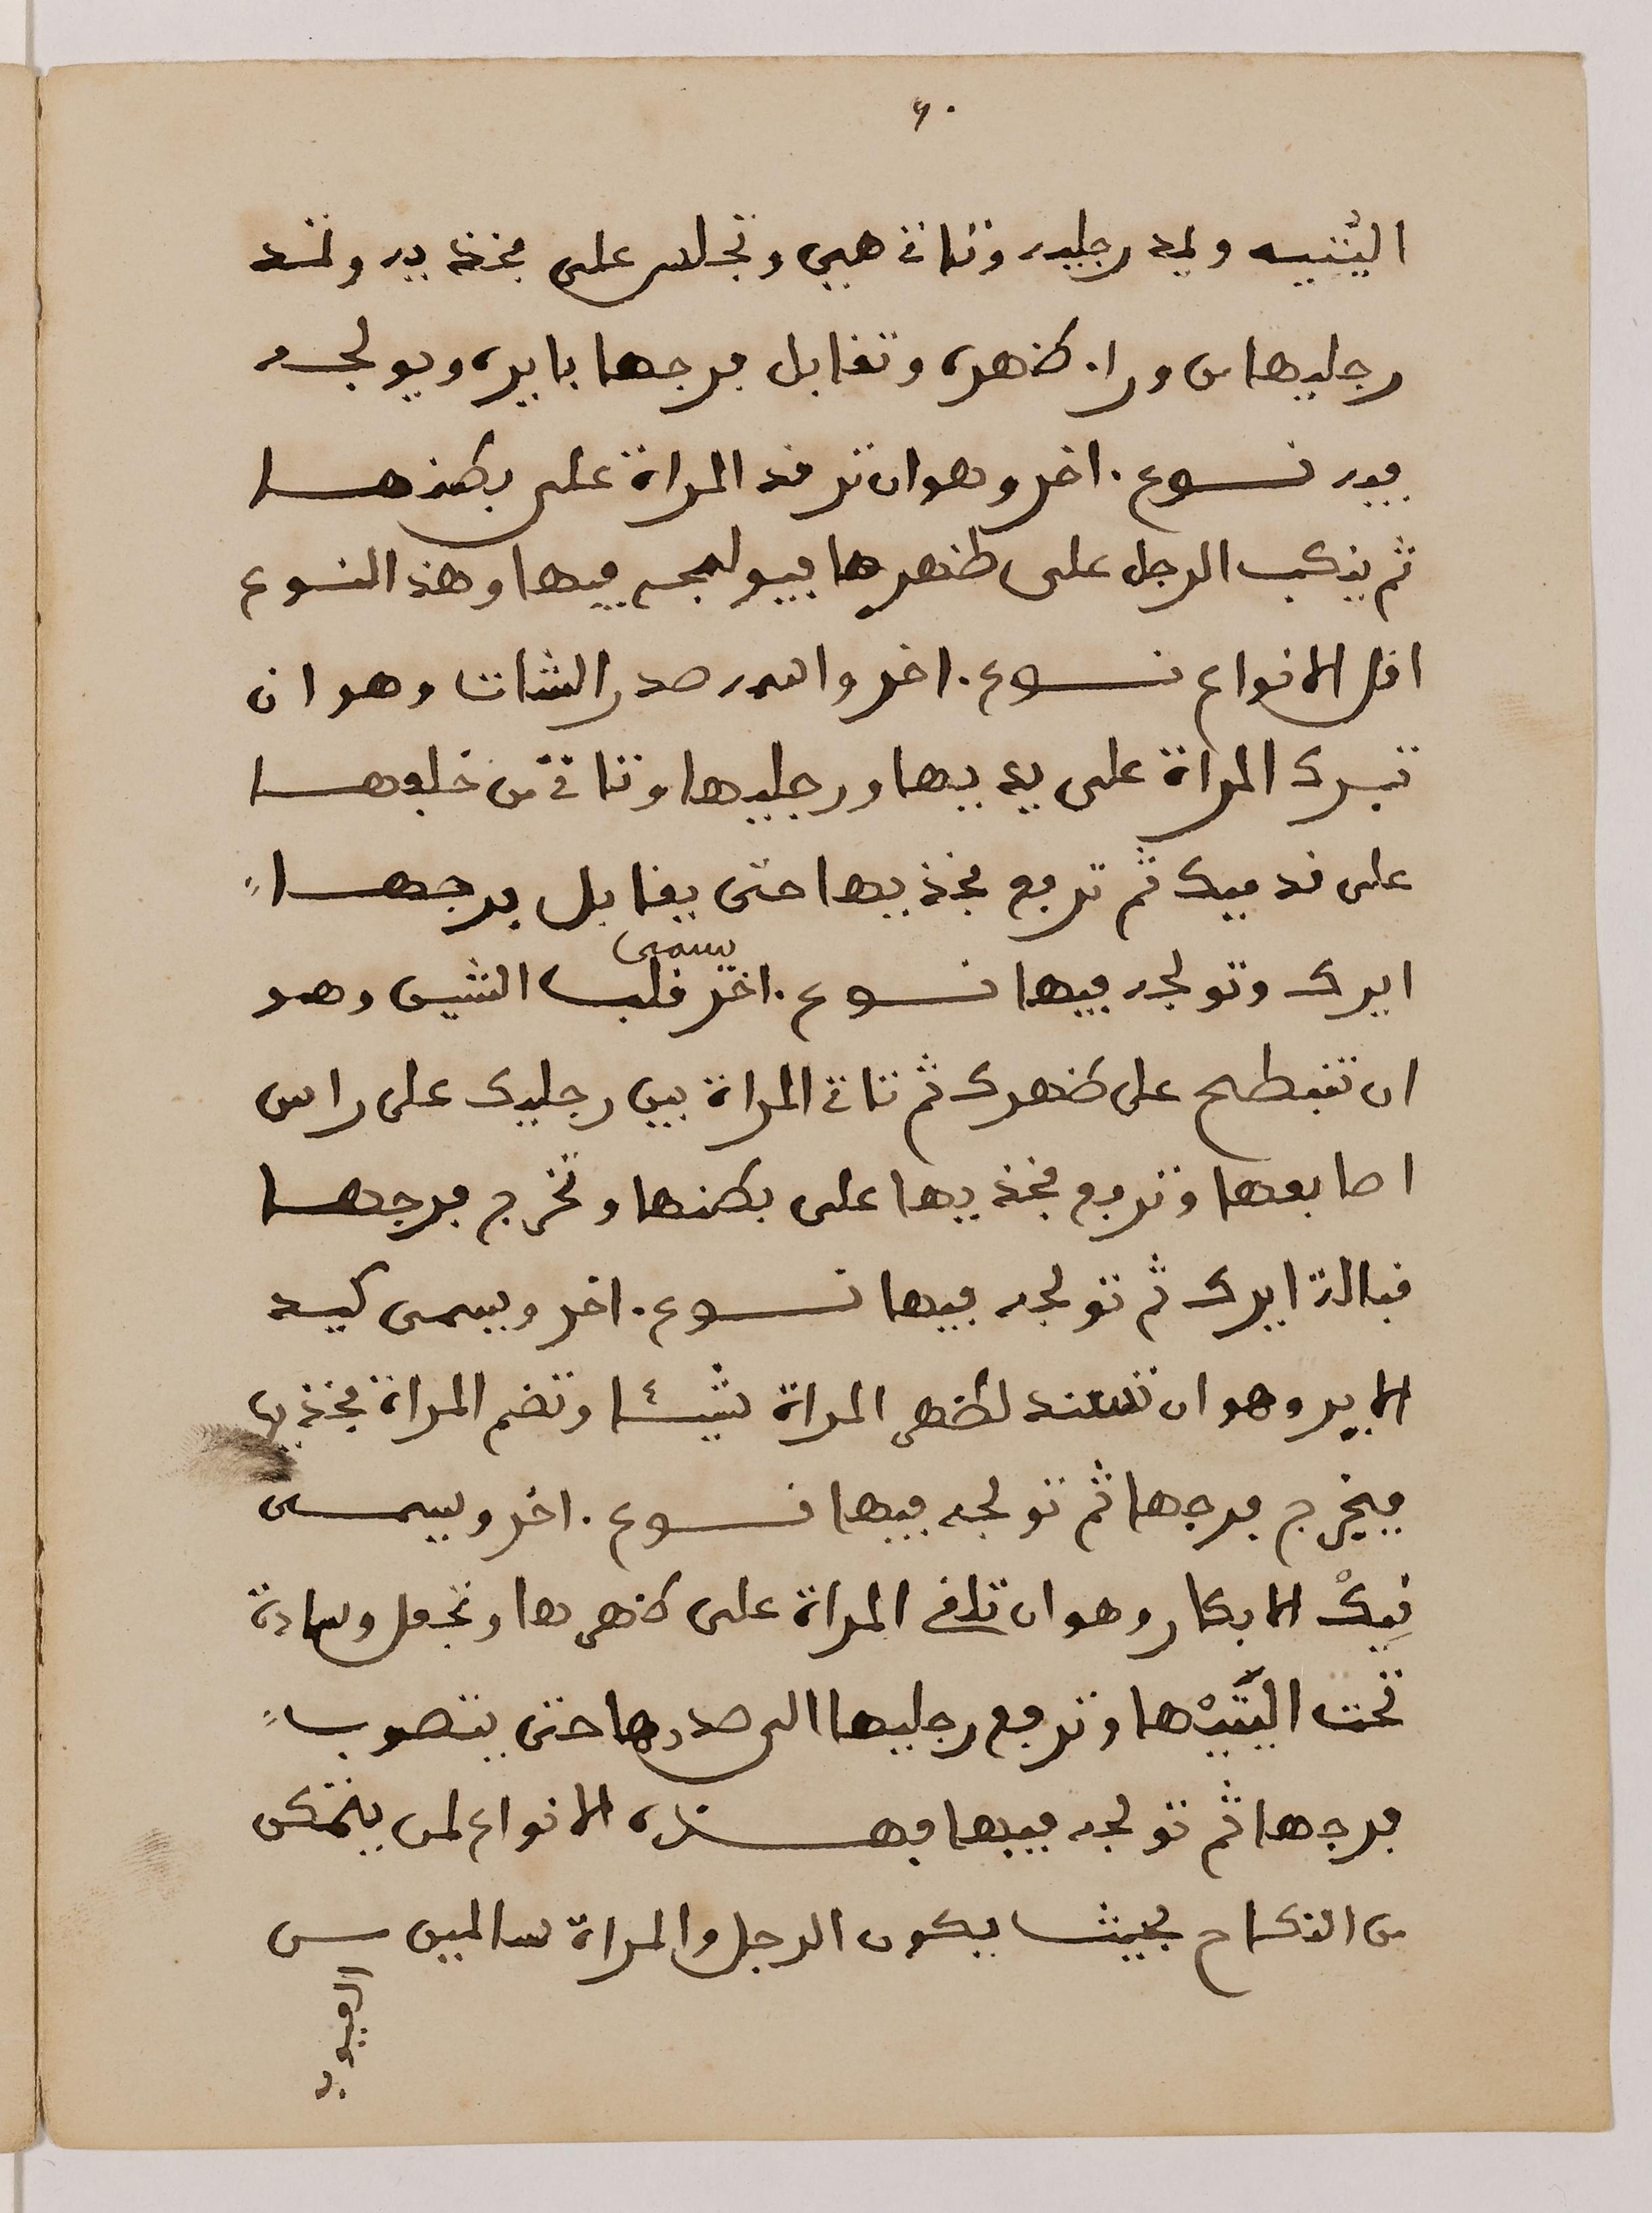 ٦٠
اليتيه ويمد رجليه وتاتي هيى وتجلس على فخذيه وتمد
رجليها من وراء كضهره وتقابل فرجها بايره ويولجه
فيه نوع اخر وهو ان ترقد المراة على بكضنها
ثم يركب الرجل على ظهرها فيولجه فيها وهذ النوع
اقل الانواع نوع اخر واسمه صدر الشات وهو ان
تبرك المراة على يديها ورجليها وتاتي من خلفها
على قدميك ثم ترفع فخذيها حتى يقابل فرجها
ايرك وتولجه فيها نوع اخر يسمى قلب الشيى وهو
ان تنبطح على ضهرك ثم تاتي المراة بين رجليك على راس
اصابعها وترفع فخذيها على بطنها وتخرج فرجها
قبالة ايرك ثم تولجه فيها نوع اخر ويسمى كيد
الاير وهو ان تسند لضهر المراة شيئا وتضم المراة فخذيها
فيخرج فرجها ثم تولجه فيها نوع اخر ويسمى
نيك الابكار وهو ان تلقي المراة على ضهرها وتجعل وسادة
تحت اليتيها وترفع رجليها الى صدرها حتى ينصوب
فرجها ثم تولجه فيها فهذه الانواع لمن يتمكن
من النكاح بحيث يكون الرجل والمراة سالمين من
العيوب